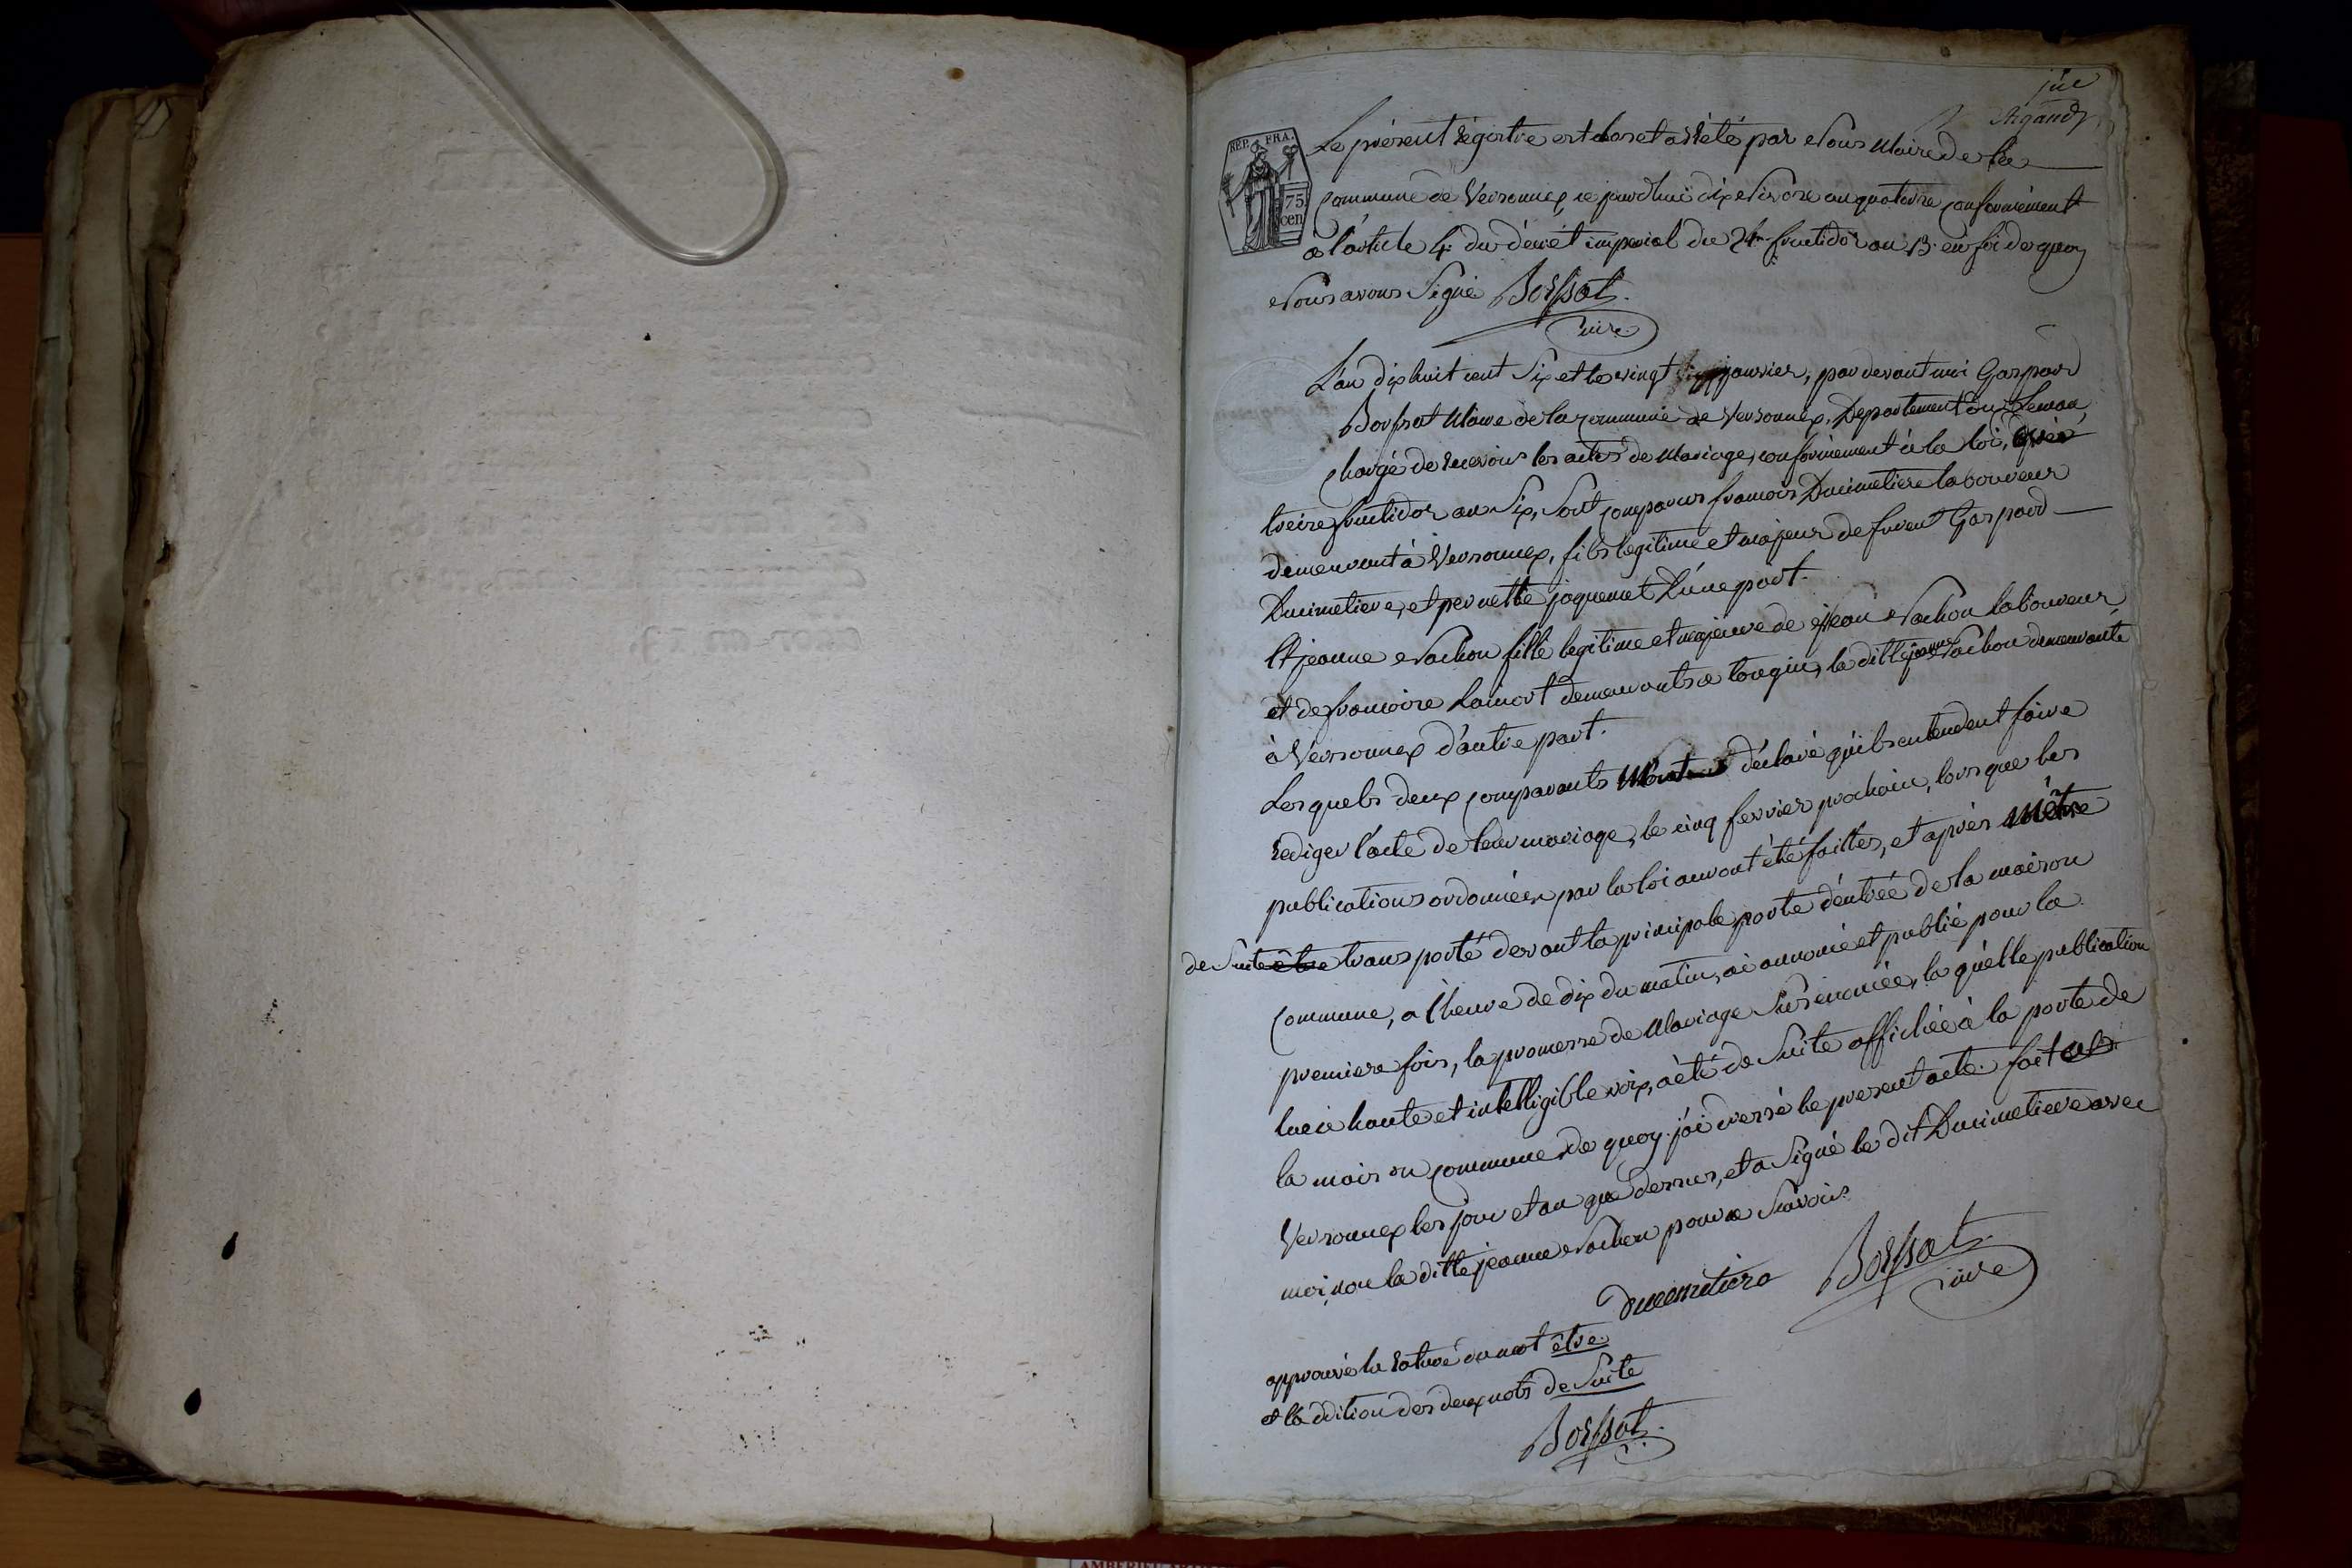 jue
Rigaud
REP. FRA.
75
cen
Le present Régistre est clos et arrêté par Nous Maire de la
commune de Versonnex, ce jourdhui dix Nivose an quatorze conformément
a l'article 4 du décret imperial du 24 fructidor an 13. en foi de quoy
Nous avons Signé Bossat.
Mire
L'an dix huit cent Six et le vingt janvier, par devant moi Gaspard
Bossat Maire de la commune de Versonnex, Departement du Leman,
chargé de recevoir les actes de Mariage, conformément à la loi,
treize fructidor an Six, Sont comparus francois Ducimetiere laboureur
demeurant à Versonnex, fils legitime et majeur de furent Gaspard
Ducimetiere, et pernette jaquemet D'une part.
Et jeanne Nachon fille legitime et majeure de jean Nachon laboureur
et de francoise Lamort demeurants a toregin, la ditte jeanne Nachon demeurante
à Versonnex d'autre part.
Lesquels deux comparants M'ont déclaré qu'ils entendent faire
rediger l'acte de leur mariage, le cinq fevrier prochain, lorsque les
publications ordonnées par la loi auront été faittes, et après M'être
de Suite être transporté devant la principale porte d'entrée de la maison
commune, a l'heure de dix du matin, ai annoncé et publié pour la
premiere fois, la promesse de Mariage Susénoncée, la quelle publication
lue à haute et intelligible voix, a été de Suite affichée à la porte de
la maison commune de quoy j'ai dressé le present acte. fait
Versonnex les jour et an que dessus, et a Signé le dit Ducimetiere avec
moi, non la ditte jeanne Nachon pour ne Savoir.
Ducemetiere Bossat
Mire
approuvé la rature du mot être.
et l'addition des deux mots de Suite
Bossat.